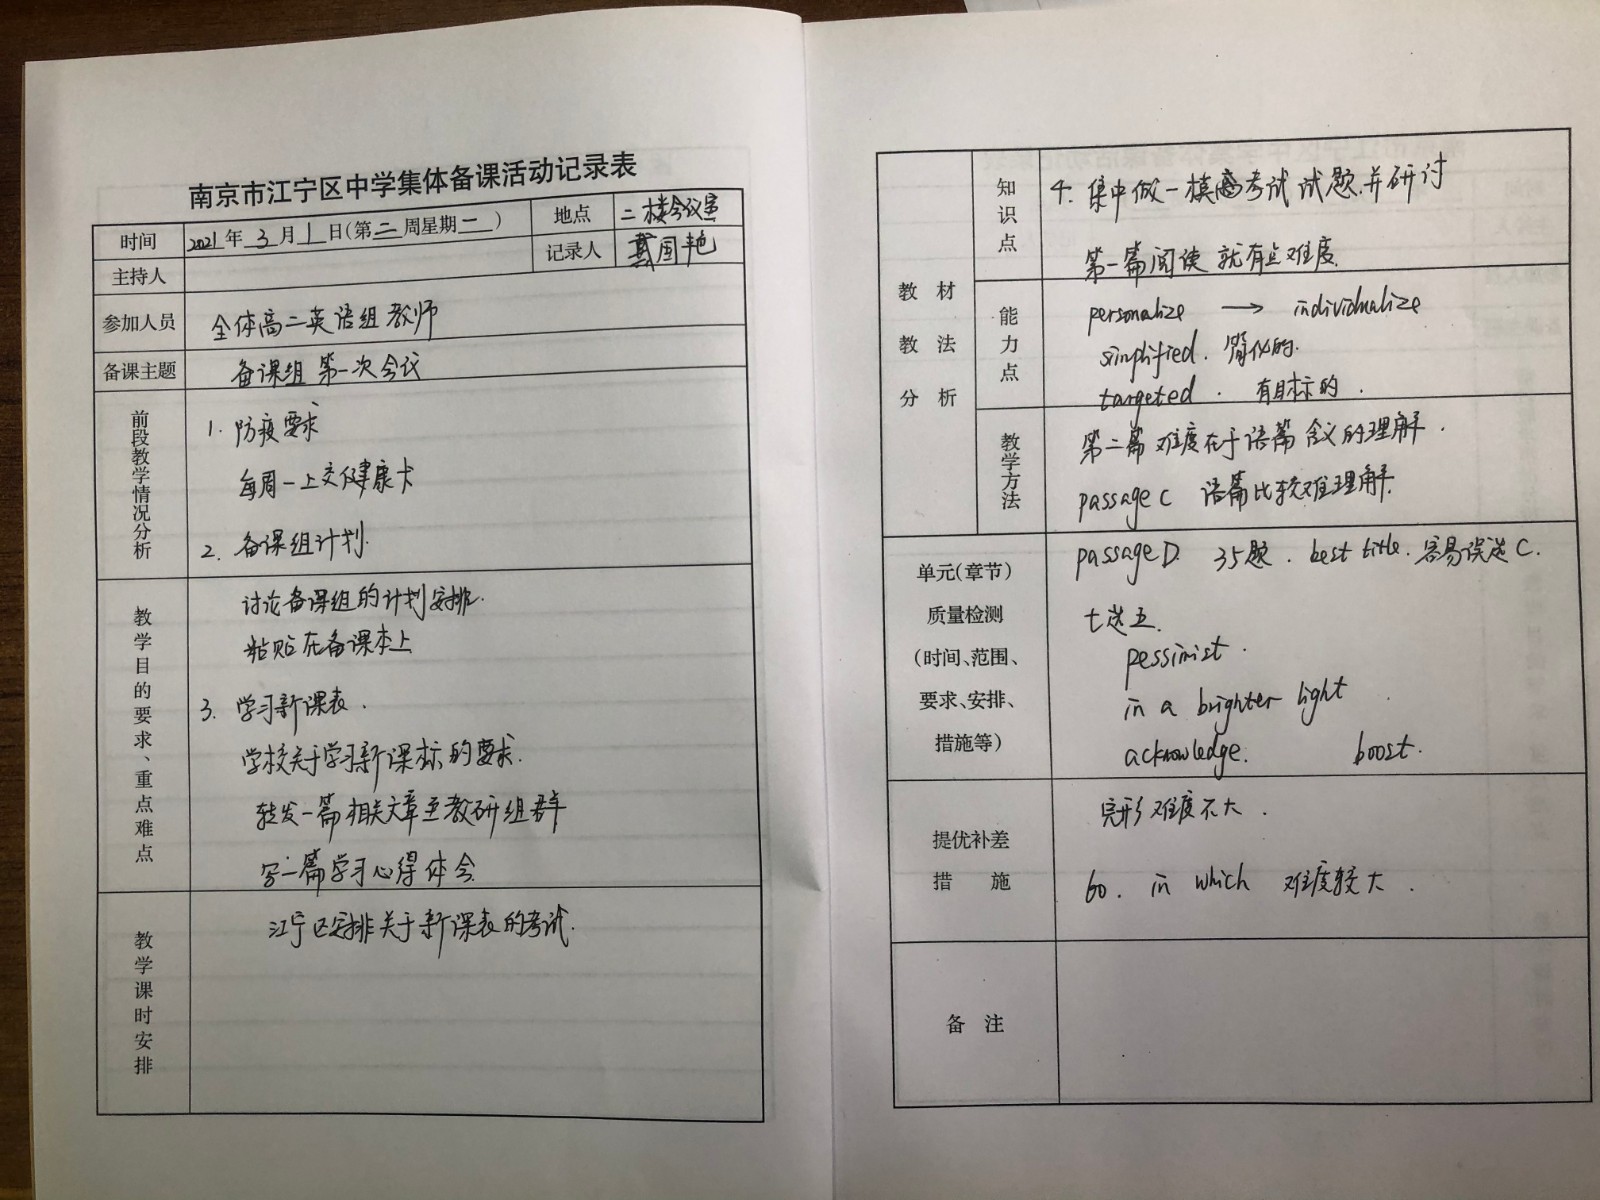 南京市江宁区中学集体备课活动记录表
时间 2021年3月1日(第二周星期一) 地点 二楼会议室
主持人 记录人 国艳
参加人员 全体高二英语组教师
备课主题 备课组第一次会议
前段教学情况分析
1. 防疫要求
每周一上交健康卡
2. 备课组计划.
教学目的要求、重点难点
讨论备课组的计划安排.
粘贴在备课本上
3. 学习新课表.
学校关于学习新课标的要求.
转发一篇相关文章至教研组群
写一篇学习心得体会
教学课时安排
江宁区安排关于新课表的考试.
教材教法分析
知识点
4. 集中做一模高考试试题,并研讨
第一篇阅读 就有点难度.
能力点
personalize → individualize
simplified. 简化的.
targeted. 有目标的.
教学方法
第二篇难度在于语篇含义的理解.
passage C 语篇比较难理解.
单元(章节)
质量检测
(时间、范围、
要求、安排、
措施等)
passage D. 35题. best title. 容易误选C.
七选五.
pessimist.
in a brighter light
acknowledge. boost.
提优补差
措施
完形难度不大.
60. in which 难度较大.
备注